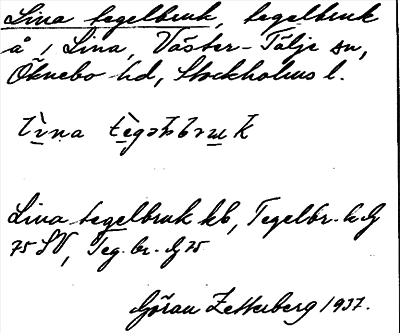 Lina tegelbruk, tegelbruk
å 1 Lina, Väster-Tälje sn,
Öknebo hd, Stockholms l.
Lina tegelbruk kb, Tegelbr.
75 SV, Teg. br. G 75
Göran Zetterberg 1937.